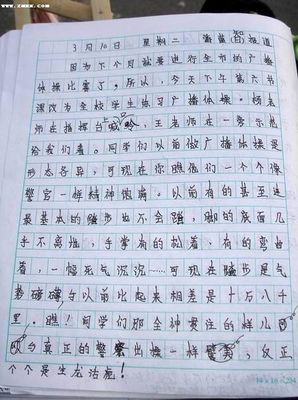 www.zmxk.com
3月10日 星期二
因为下个月就要进行全市的广播
体操比赛了,所以,今天下午第六节
课改为全校学生练习广播体操。杨老
师在指挥台上喊,王老师在一旁示范
给我们看。同学们以前做广播体操是
形态各异,可现在你瞧他们一个个像
警官一样精神饱满。以前有的甚至连
最基本的踏步也不会踏,脚的底面几
乎不离地,手掌有的松着,有的弯曲
着,一幅死气沉沉……可现在踏步是气
势磅礴与以前比起来相差是十万八千
里。瞧!同学们那全神贯注的样儿
真正的警察出操一样,仅正
个个是生龙活虎!